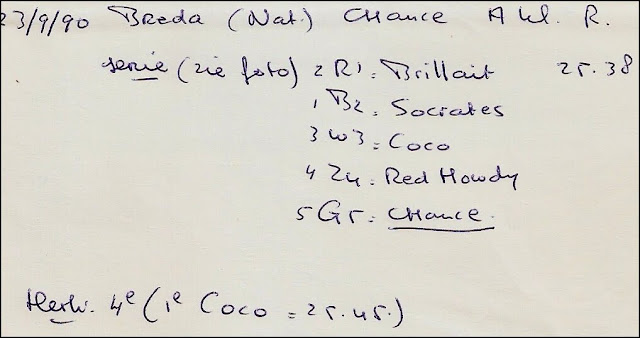 23/9/90 Breda (Nat.) Chance A kl. R.
serie (zie foto) 2 R1: Brillait 25.38
1 B2: Socrates
3 W3: Coco
4 Z4: Red Howdy
5 G5: Chance.
Herk. 4e (1e Coco = 25.45.)